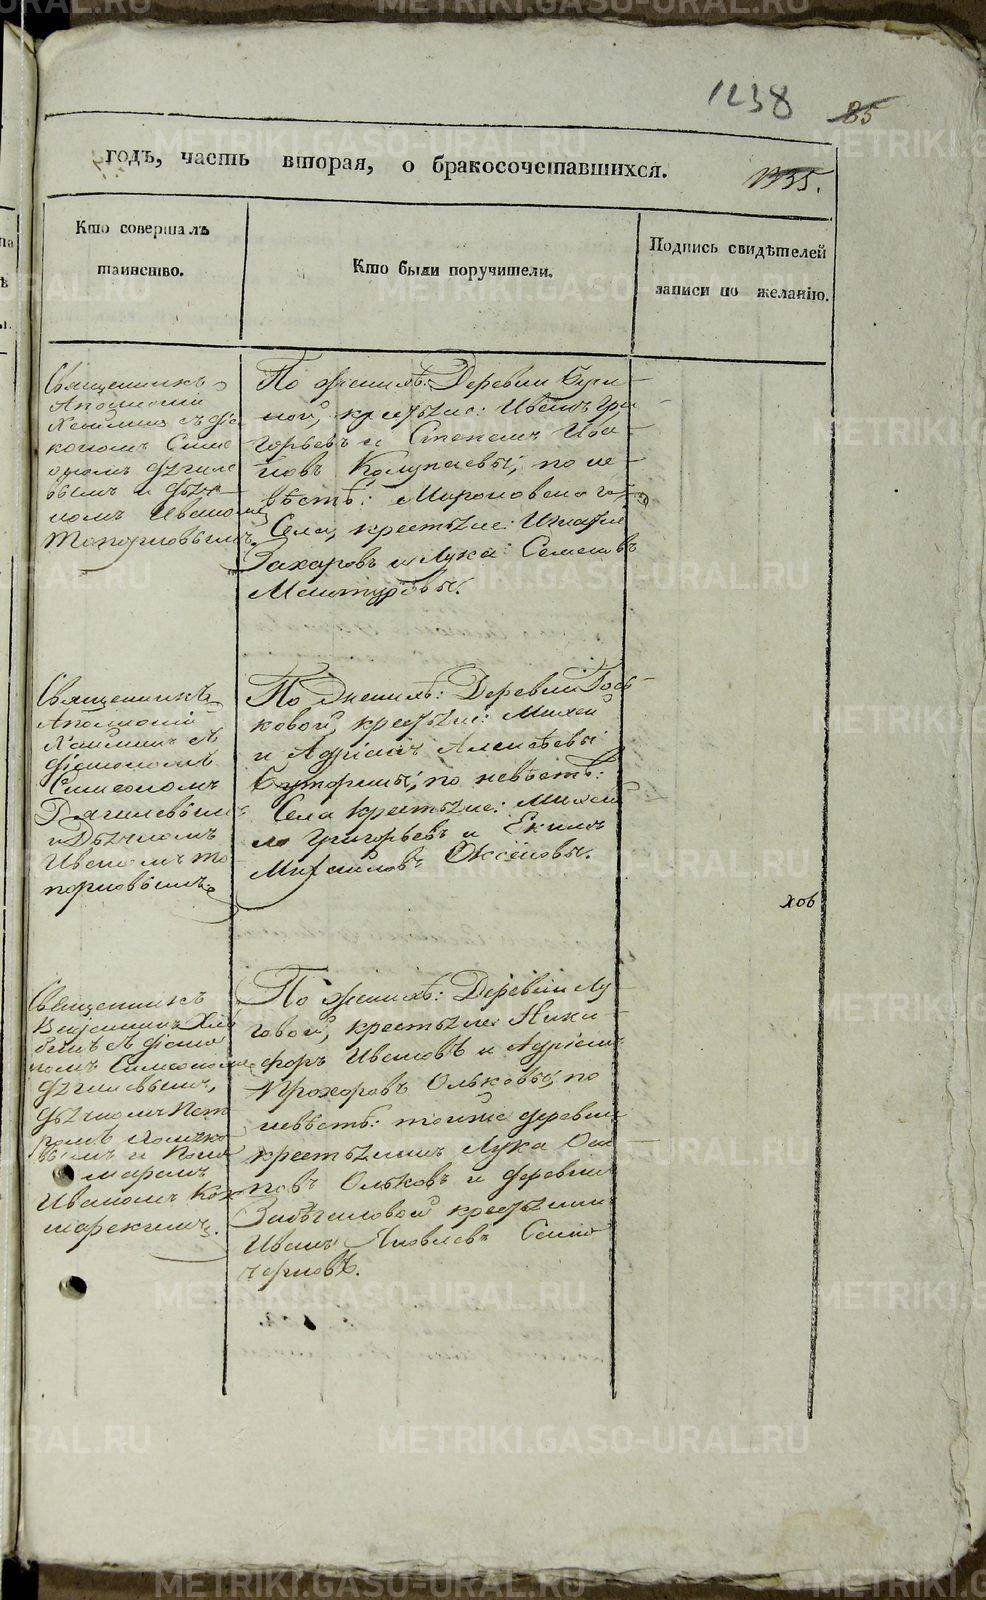 METRIKI.GASO-URAL.RU
1238
85
годъ, часть вторая, о бракосочетавшихся.
1335.
Кто совершалъ таинство.
Кто были поручители.
Подпись свидѣтелей записи по желанію.
Священникъ
Аполлоній
съ діа
кономъ Симе
ономъ
вымъ и дьяч
комъ Иваномъ
Топорковымъ
По женихѣ: Деревни
ной, крестьяне: Иванъ Гри
горьевъ и Степанъ Ива
новъ Колупаевы; по не
вѣстѣ: Мироновскаго
Села, крестьяне: Игнатій
Захаровъ и Лука Семеновъ
Мантуровы.
Священникъ
Аполлоній
съ
діакономъ
Симеономъ
Дягилевымъ
и Дьячкомъ
Иваномъ То
порковымъ
По Женихѣ: Деревни
ковой, крестьяне: Михей
и Адріанъ Алексѣевы
Буторины; по невѣстѣ:
Села крестьяне: Михаи
ло Григорьевъ и Екимъ
Михайловъ Оксеновы.
хов
Священникъ
съ діако
номъ Симеономъ
Дягилевымъ,
дьячкомъ Пет
ромъ
вымъ и Поно
маремъ
Иваномъ Кок
шарскимъ.
По женихѣ: Деревни Лу
говой, крестьяне: Ники
форъ Ивановъ и Адріанъ
Прохоровъ Ольковы, по
невѣстѣ: тойже деревни
крестьянинъ Лука Оси
повъ Ольковъ и деревни
крестьянинъ
Иванъ Яковлевъ Само
черновъ.